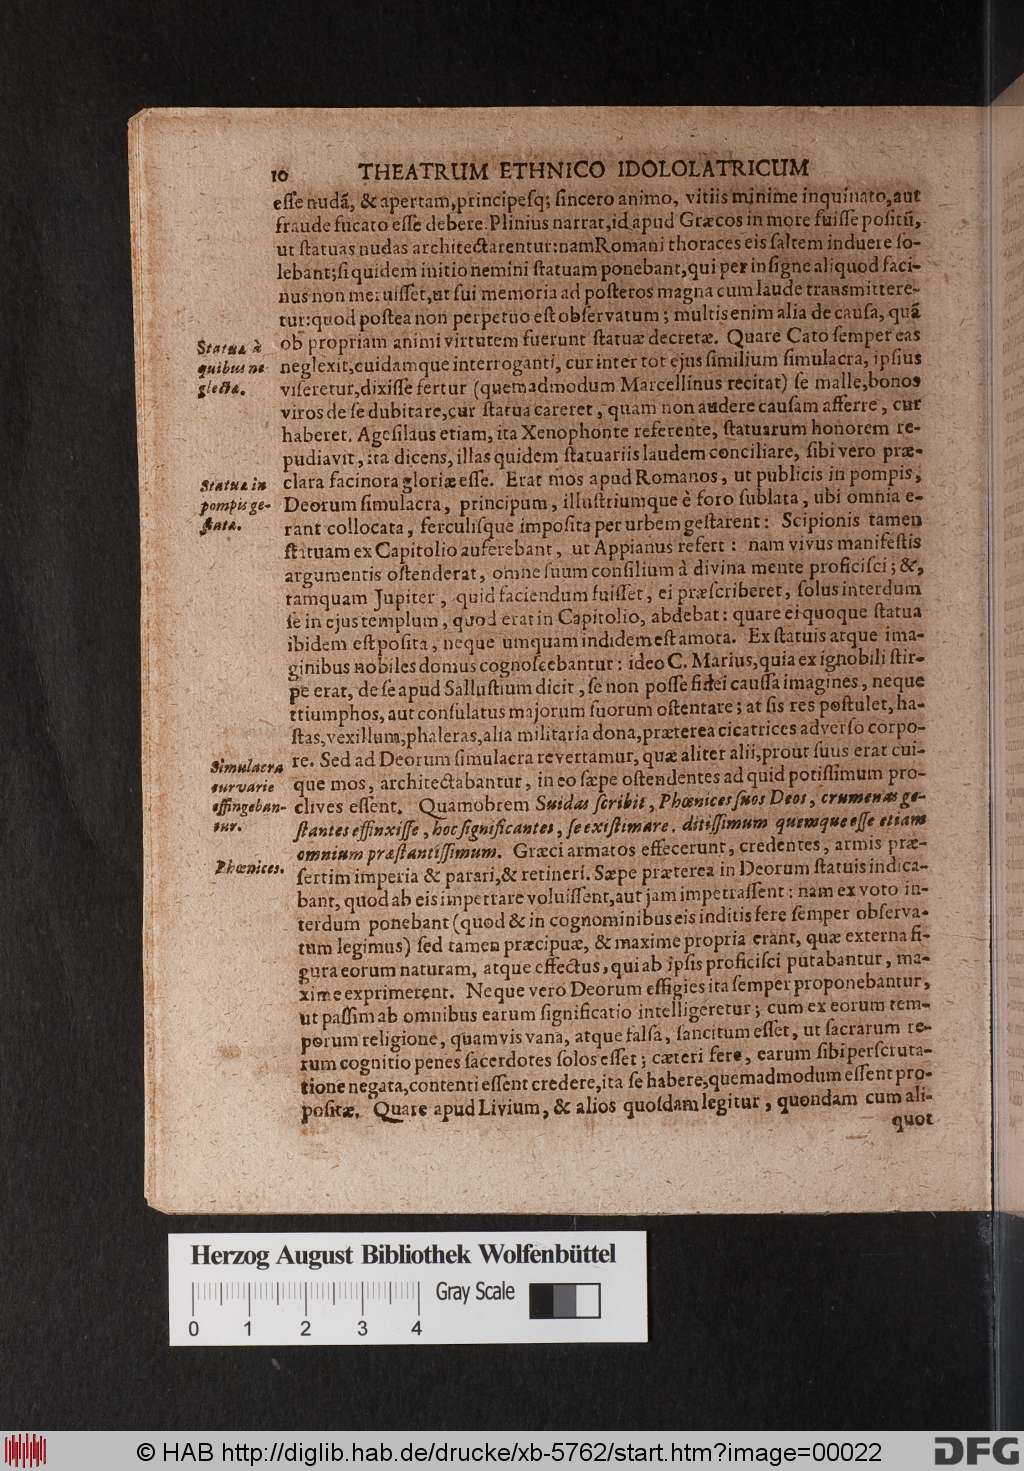 10 THEATRUM ETHNICO IDOLOLATRICUM
eſſe nudã, & apertam, principeſq; ſincero animo, vitiis minime inquinato, aut
fraude fucato eſſe debere. Plinius narrat, id apud Græcos in more fuiſſe poſitũ,
ut ſtatuas nudas architectarentur: nam Romani thoraces eis ſaltem induere ſo-
lebant; ſi quidem initio nemini ſtatuam ponebant, qui per inſigne aliquod faci-
nus non meruiſſet, ut ſui memoria ad poſteros magna cum laude transmittere-
tur: quod poſtea non perpetuo eſt obſervatum; multis enim alia de cauſa, quã
ob propriam animi virtutem fuerunt ſtatuæ decretæ. Quare Cato ſemper eas
neglexit, cuidamque interroganti, cur inter tot ejus ſimilium ſimulacra, ipſius
viſeretur, dixiſſe fertur (quemadmodum Marcellinus recitat) ſe malle, bonos
viros de ſe dubitare, cur ſtatua careret, quam non audere cauſam afferre, cur
haberet. Ageſilaus etiam, ita Xenophonte referente, ſtatuarum honorem re-
pudiavit, ita dicens, illas quidem ſtatuariis laudem conciliare, ſibi vero præ-
clara facinora gloriæ eſſe. Erat mos apud Romanos, ut publicis in pompis,
Deorum ſimulacra, principum, illuſtriumque è foro ſublata, ubi omnia e-
rant collocata, ferculiſque impoſita per urbem geſtarent: Scipionis tamen
ſtatuam ex Capitolio auferebant, ut Appianus refert: nam vivus manifeſtis
argumentis oſtenderat, omne ſuum conſilium à divina mente proficiſci; &,
tamquam Jupiter, quid faciendum fuiſſet, ei præſcriberet, ſolus interdum
ſe in ejus templum, quod erat in Capitolio, abdebat: quare ei quoque ſtatua
ibidem eſt poſita, neque umquam indidem eſt amota. Ex ſtatuis atque ima-
ginibus nobiles domus cognoſcebantur: ideo C. Marius, quia ex ignobili ſtir-
pe erat, de ſe apud Salluſtium dicit, ſe non poſſe fidei cauſſa imagines, neque
triumphos, aut conſulatus majorum ſuorum oſtentare; at ſis res poſtulet, ha-
ſtas, vexillum, phaleras, alia militaria dona, præterea cicatrices adverſo corpo-
re. Sed ad Deorum ſimulacra revertamur, quæ aliter alii, prout ſuus erat cui-
que mos, architectabantur, in eo ſæpe oſtendentes ad quid potiſſimum pro-
clives eſſent. Quamobrem Suidas ſcribit, Phœnices ſuos Deos, crumenas ge-
ſtantes effinxiſſe, hoc ſignificantes, ſe exiſtimare, ditiſſimum quemque eſſe etiam
omnium præſtantiſſimum. Græci armatos effecerunt, credentes, armis præ-
ſertim imperia & parari, & retineri. Sæpe præterea in Deorum ſtatuis indica-
bant, quod ab eis impetrare voluiſſent, aut jam impetraſſent: nam ex voto in-
terdum ponebant (quod & in cognominibus eis inditis fere ſemper obſerva-
tum legimus) ſed tamen præcipuæ, & maxime propria erant, quæ externa fi-
gura eorum naturam, atque effectus, qui ab ipſis proficiſci putabantur, ma-
xime exprimerent. Neque vero Deorum effigies ita ſemper proponebantur,
ut paſſim ab omnibus earum ſignificatio intelligeretur; cum ex eorum tem-
porum religione, quamvis vana, atque falſa, ſancitum eſſet, ut ſacrarum re-
rum cognitio penes ſacerdotes ſolos eſſet; cæteri fere, earum ſibi perſcruta-
tione negata, contenti eſſent credere, ita ſe habere, quemadmodum eſſent pro-
poſitæ. Quare apud Livium, & alios quoſdam legitur, quondam cum ali-
quot
Statuæ à
quibus ne
glectæ.
Statuæ in
pompis ge-
ſtatæ.
Simulacra
cur varie
effingeban-
tur.
Phœnices.
Herzog August Bibliothek Wolfenbüttel
Gray Scale
0 1 2 3 4
© HAB http://diglib.hab.de/drucke/xb-5762/start.htm?image=00022
DFG